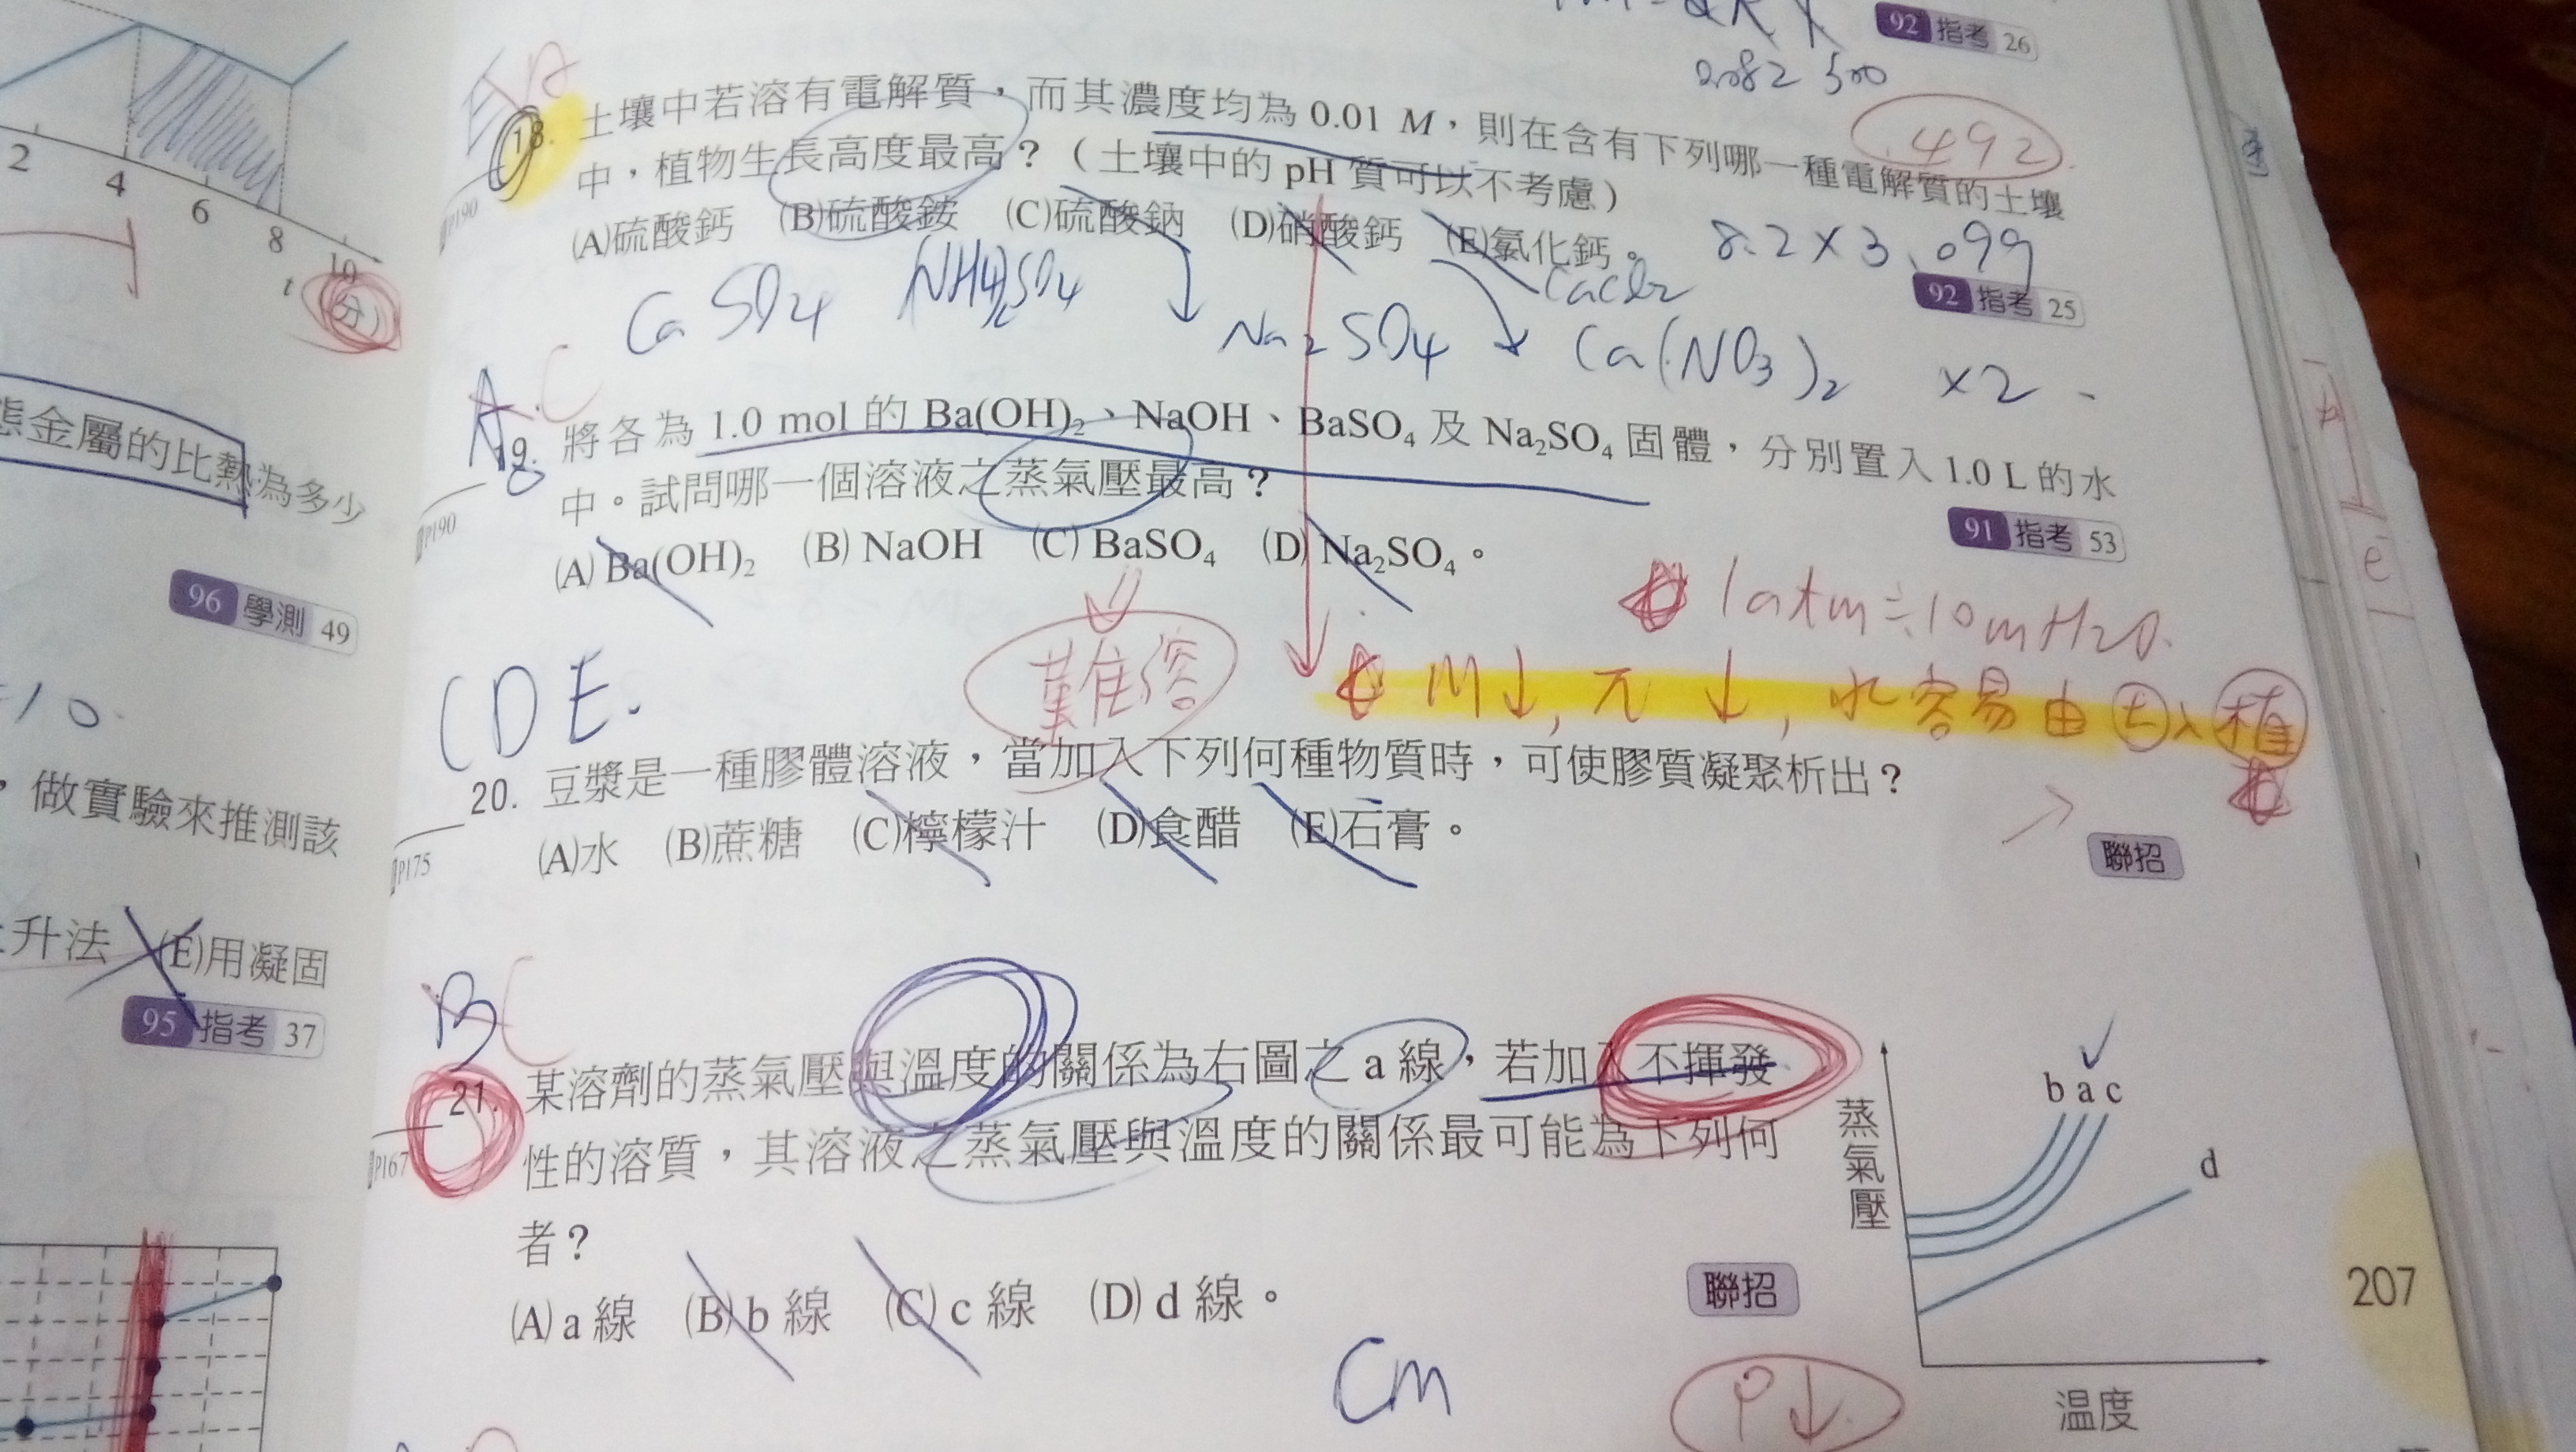 2
4
6
8
10
t
(分)
態金屬的比熱為多少
96 學測 49
=10.
,做實驗來推測該
升法 (E)用凝固
95 指考 37
92 指考 26
2082 500
.492
18. 土壤中若溶有電解質，而其濃度均為 0.01 M，則在含有下列哪一種電解質的土壤
中，植物生長高度最高？（土壤中的 pH 質可以不考慮）
P190
(A)硫酸鈣 (B)硫酸銨 (C)硫酸鈉 (D)硝酸鈣 (E)氯化鈣。
8.2×3.099
92 指考 25
CaSO4 (NH4)2SO4 Na2SO4 CaCl2
Ca(NO3)2 ×2
A C
19. 將各為 1.0 mol 的 Ba(OH)₂、NaOH、BaSO₄ 及 Na₂SO₄ 固體，分別置入 1.0 L 的水
中。試問哪一個溶液之蒸氣壓最高？
P190
91 指考 53
(A) Ba(OH)₂ (B) NaOH (C) BaSO₄ (D) Na₂SO₄。
難溶
1atm≒10mH2O.
M↓, π↓, 水容易由土入植
CDE.
20. 豆漿是一種膠體溶液，當加入下列何種物質時，可使膠質凝聚析出？
P175
(A)水 (B)蔗糖 (C)檸檬汁 (D)食醋 (E)石膏。
聯招
B C
21. 某溶劑的蒸氣壓與溫度的關係為右圖之 a 線，若加入不揮發
性的溶質，其溶液之蒸氣壓與溫度的關係最可能為下列何
者？
P167
(A) a 線 (B) b 線 (C) c 線 (D) d 線。
聯招
蒸氣壓
b a c
d
溫度
Cm
P↓
207